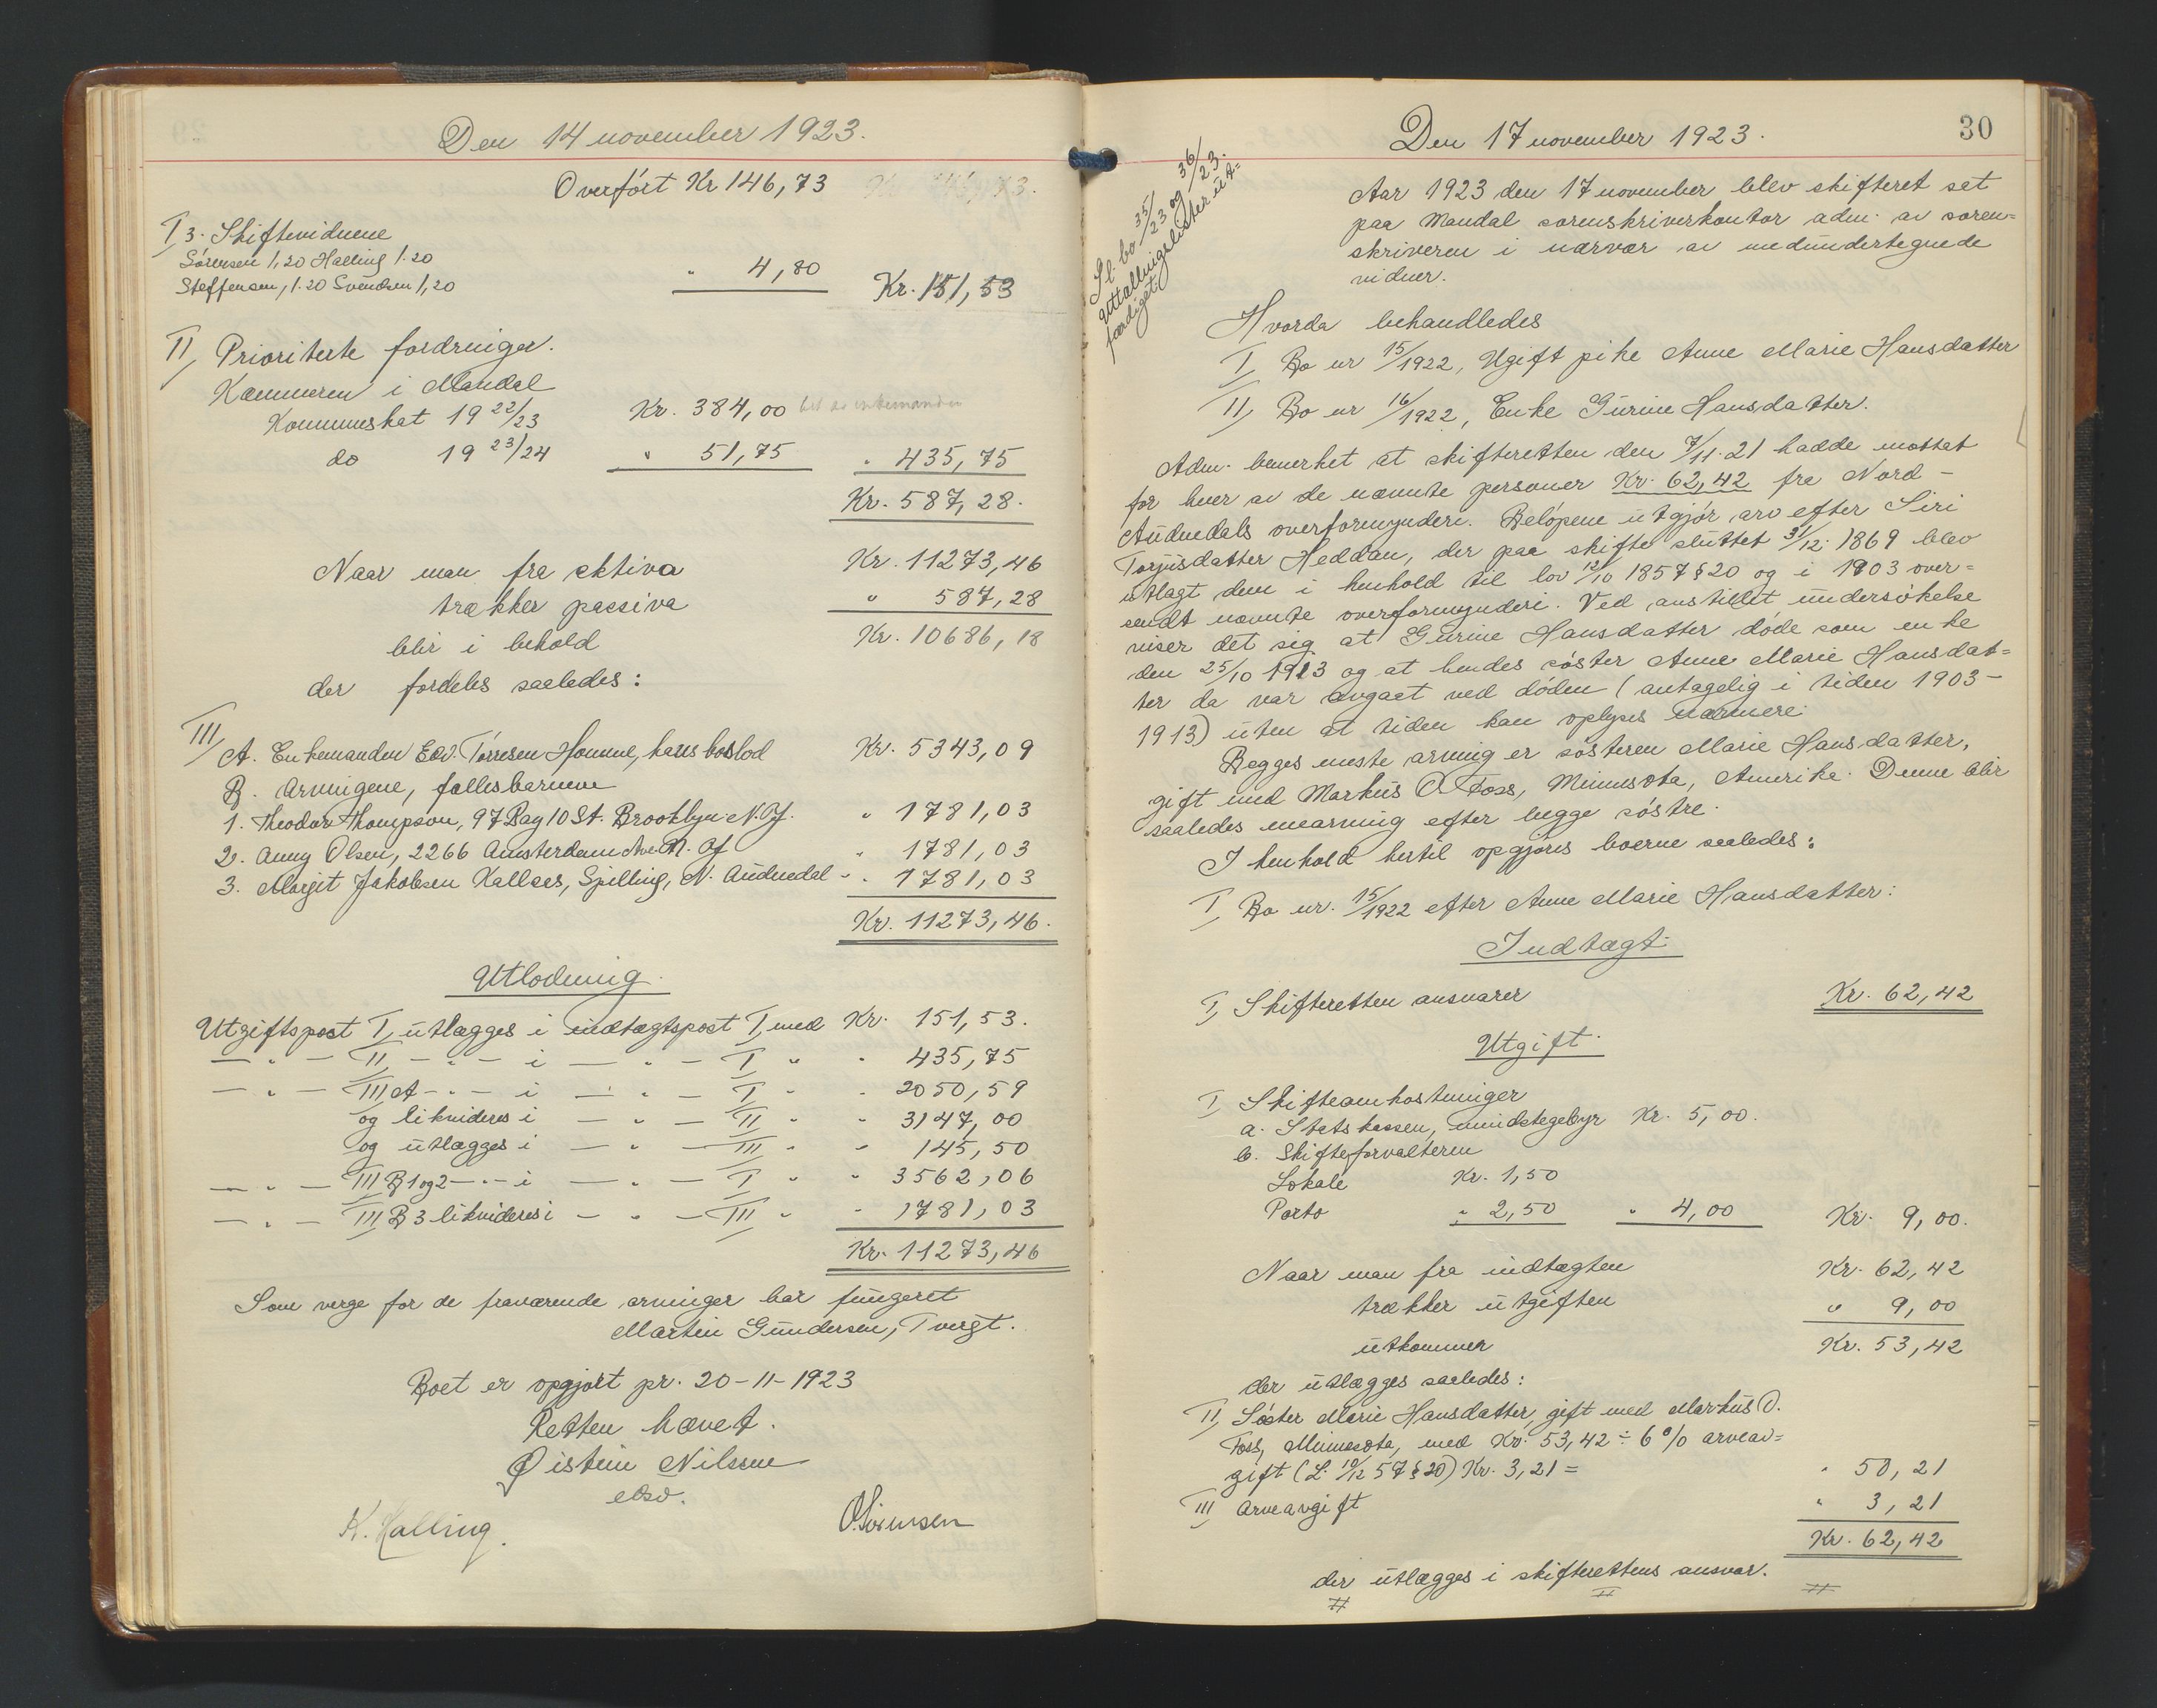 Den 14 november 1923.
Overført Kr 146,73
I 3. Skiftevidnene
Sörensen 1,20 Halling 1.20
Steffensen, 1.20 Svendsen 1,20 " 4,80 Kr. 151,53
II, Prioriterte fordringer.
Kæmneren i Mandal
Kommuneskat 19 22/23 Kr. 384,00
do 19 23/24 " 51,75 " 435,75
Kr. 587,28.
Naar man fra aktiva Kr. 11273,46
trækker passiva " 587,28
blir i behold Kr. 10686,18
der fordeles saaledes:
III,
A. Enkemanden Edv. Tørresen Homme, hans boslod Kr. 5343,09
B. Arvingene, fællesbarnene
1. Theodor Thompson, 97 Bay 10 St. Brooklyn N.Y. " 1781,03
2. Anny Olsen, 2266 Amsterdam Ave N. Y " 1781,03
3. Margit Jakobsen Kallaas, Spilling, N. Audnedal - " 1781,03
Kr. 11273,46.
Utlodning.
Utgiftspost I, utlægges i indtægtspost I, med Kr. 151,53.
— " — II, — " — i — " — I " " 435,75
— " — III A — " — i — " — I " " 2050,59
og likvideres i — " — II " " 3147,00
og utlægges i — " — III " " 145,50
— " — III B 1 og 2 — " — i — " — I " " 3562,06
— " — III B 3 likvideres i — " — III " " 1781,03
Kr. 11273,46
Som verge for de fraværende arvinger har fungeret
Martin Gundersen, Tregt.
Boet er opgjort pr. 20-11-1923
Retten hævet.
Øistein Nilssen
edsv.
K. Halling. O. Sörensen
Den 17 november 1923. 30
Sl. bo 35/23 og 36/23.
Uttallingslister ut-
færdiget.
Aar 1923 den 17 november blev skifteret sat
paa Mandal sorenskriverkontor adm. av soren-
skriveren i nærvær av medundertegnede
vidner.
Hvorda behandledes
I, Bo nr 15/1922, Ugift pike Anne Marie Hansdatter
II, Bo nr 16/1922, Enke Gurine Hansdatter.
Adm. bemerket at skifteretten den 7/11.21 hadde mottat
for hver av de nævnte personer Kr. 62,42 fra Nord-
Audnedals overformynderi. Beløpene utgjör arv efter Siri
Torjusdatter Heddan, der paa skifte sluttet 31/12. 1869 blev
utlagt dem i henhold til lov 12/10 1857 § 20 og i 1903 over-
sendt nævnte overformynderi. Ved anstillet undersökelse
viser det sig at Gurine Hansdatter döde som enke
den 25/10 1913 og at hendes söster Anne Marie Hansdat-
ter da var avgaat ved döden (antagelig i tiden 1903-
1913) uten at tiden kan oplyses nærmere.
Begges neste arving er sösteren Marie Hansdatter,
gift med Markus O. Foss, Minnesota, Amerika. Denne blir
saaledes enearving efter begge söstre.
I henhold hertil opgjøres boerne saaledes:
I, Bo nr. 15/1922 efter Anne Marie Hansdatter:
Indtægt.
I, Skifteretten ansvarer Kr. 62,42
Utgift.
I, Skifteomkostninger
a. Statskassen, mindstegebyr Kr. 5,00.
b. Skifteforvalteren
Lokale Kr. 1,50
Porto " 2,50 " 4,00 Kr. 9,00.
Naar man fra indtægten Kr. 62,42
trækker utgiften " 9,00
utkommer Kr. 53,42
der utlægges saaledes:
II, Søster Marie Hansdatter, gift med Markus O.
Foss, Minnesota, med Kr. 53,42 ÷ 6 % arveav-
gift (L. 10/12 57 § 20) Kr. 3,21 = " 50,21
III, Arveavgift " 3,21
Kr. 62,42
der utlægges i skifterettens ansvar.